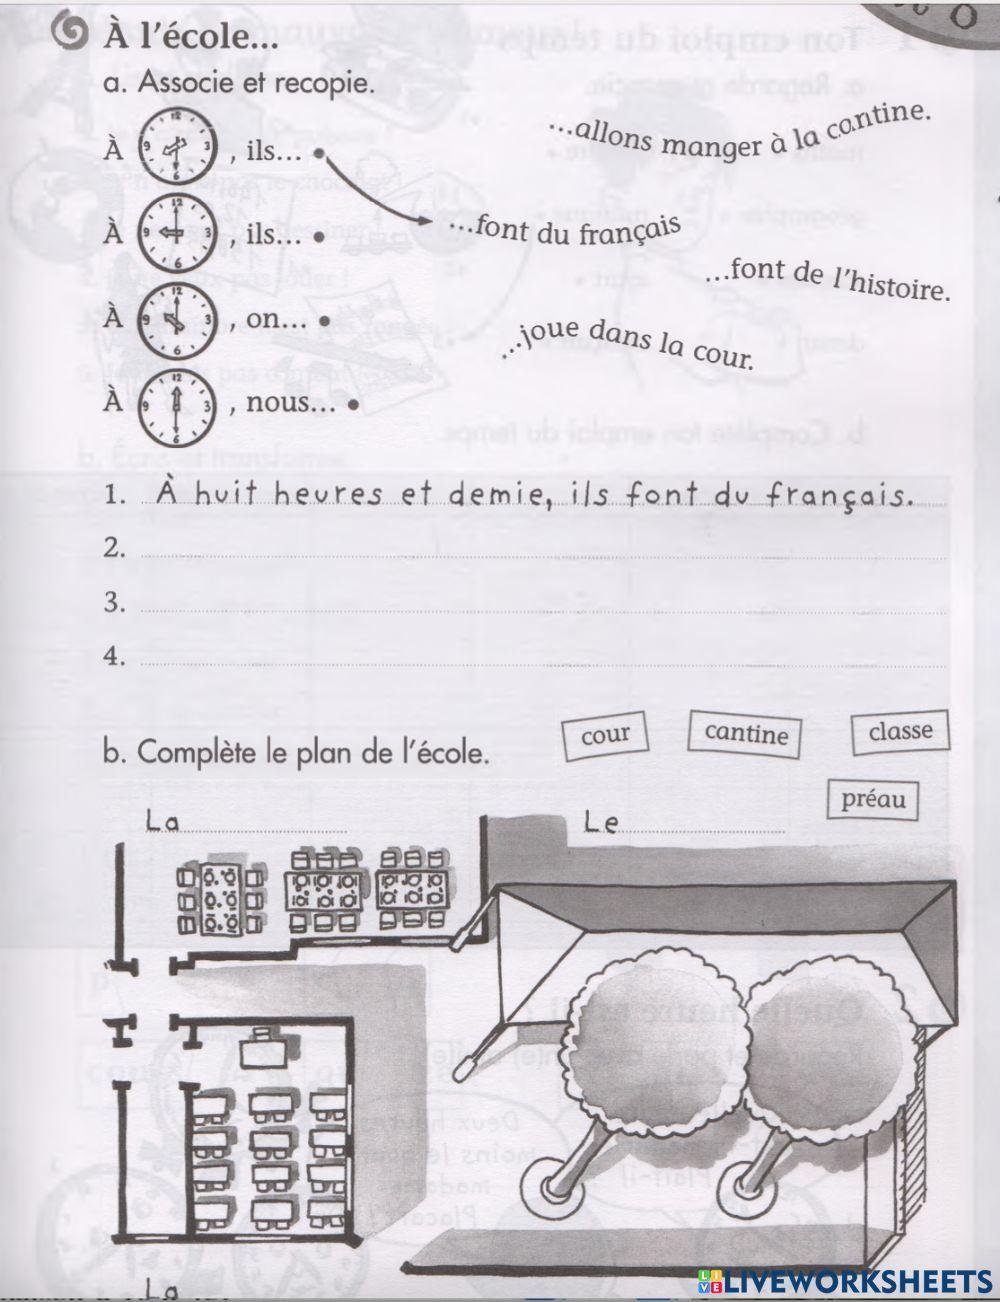 À l'école...
a. Associe et recopie.
À 12 3 6 9 , ils...
À 12 3 6 9 , ils...
À 12 3 6 9 , on...
À 12 3 6 9 , nous...
...allons manger à la cantine.
...font du français
...font de l'histoire.
...joue dans la cour.
1. À huit heures et demie, ils font du français.
2.
3.
4.
b. Complète le plan de l'école.
cour
cantine
classe
préau
La
Le
La
LIVEWORKSHEETS